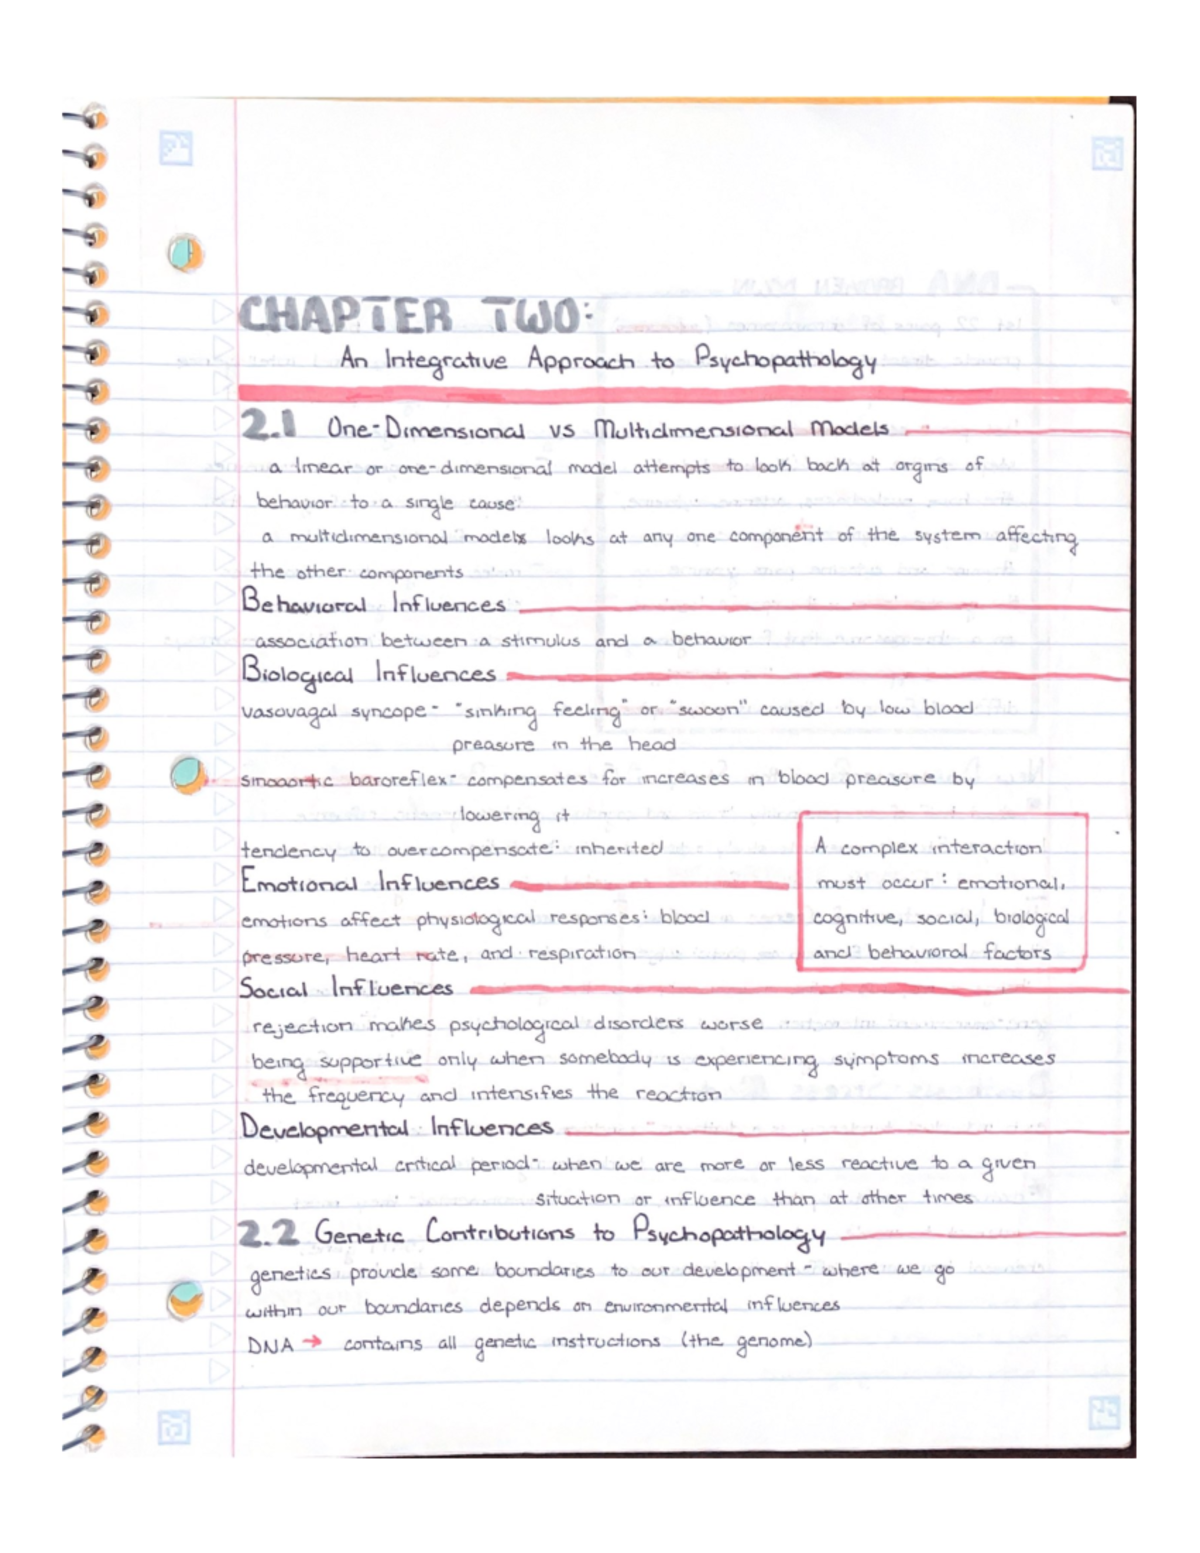 CHAPTER TWO:
An Integrative Approach to Psychopathology
2.1 One-Dimensional vs Multidimensional Models
a linear or one-dimensional model attempts to look back at orgins of
behavior to a single cause
a multidimensional models looks at any one component of the system affecting
the other components
Behavioral Influences
association between a stimulus and a behavior
Biological Influences
vasovagal syncope- "sinking feeling" or "swoon" caused by low blood
preasure in the head
sinoaortic baroreflex- compensates for increases in blood preasure by
lowering it
tendency to overcompensate: inherited
Emotional Influences
emotions affect physiological responses: blood
pressure, heart rate, and respiration
A complex interaction
must occur: emotional,
cognitive, social, biological
and behavioral factors
Social Influences
rejection makes psychological disorders worse
being supportive only when somebody is experiencing symptoms increases
the frequency and intensifies the reaction
Developmental Influences
developmental critical period- when we are more or less reactive to a given
situation or influence than at other times
2.2 Genetic Contributions to Psychopathology
genetics provide some boundaries to our development - where we go
within our boundaries depends on environmental influences
DNA → contains all genetic instructions (the genome)